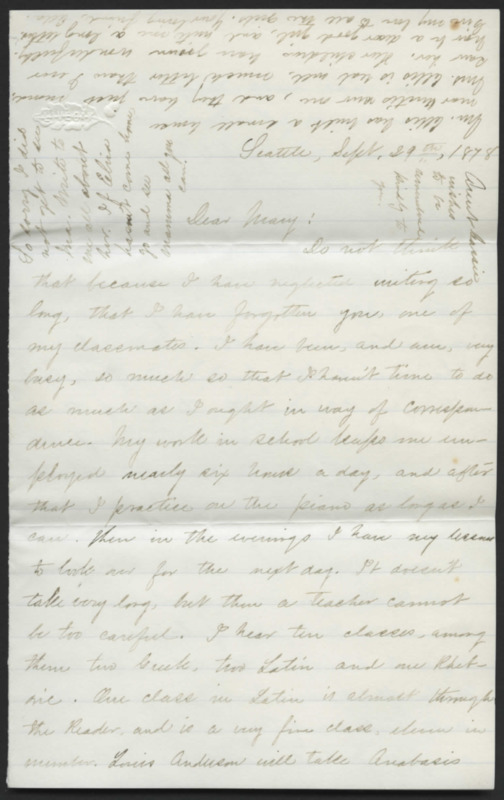 Seattle, Sept. 26 1878
Dear Mary:
Do not think
that because I have neglected writing so
long, that I have forgotten you, one of
my classmates. I have been, and am, very
busy, so much so that I haven't time to do
as much as I ought in way of correspon-
dence. My work in school keeps me em-
ployed nearly six hours a day, and after
that I practice on the piano as long as I
can. Then in the evenings I have my lessons
to look over for the next day. It doesn't
take very long, but then a teacher cannot
be too careful. I hear ten classes, among
them two Greek, two Latin and one Rhet-
oric. One class in Latin is almost through
the Reader, and is a very fine class, eleven in
number. Louis Anderson will take Anabasis
So sorry I did
not get to see
Ina. Write to
me all about
her. If Ellis
hasn't come home,
go and see
Mamma all you
can.
Aunt
wishes
to be
remembered
kindly to
you.
Mr. Ellis has built a small house
near Uncle's our one, and they have just moved.
Mrs. Ellis is not well, much better than I ever
saw her. Her children have grown wonderfully.
Now be a dear good girl, and write me a long letter.
Give my love to all the girls. Your loving friend,